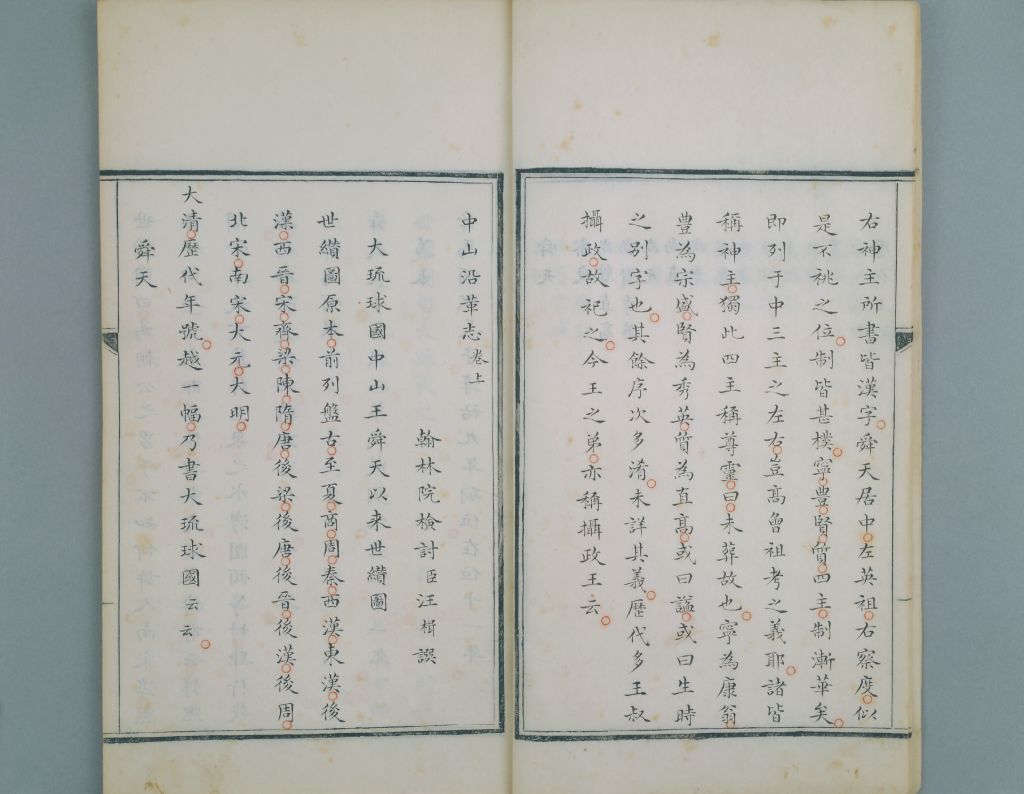 右神主所書皆漢字舜天居中左英祖右察度似
是不祧之位制皆甚樸寧豐賢質四主制漸華矣
即列于中三主之左右豈髙曾祖考之義耶諸皆
稱神主獨此四主稱尊靈曰未葬故也寧為康翁
豐為宗盛賢為秀英質為直髙或曰謚或曰生時
之别字也其餘序次多淆未詳其義歷代多王叔
攝政故祀之今王之弟亦稱攝政王云
中山沿革志卷上
翰林院檢討臣汪楫譔
大琉球國中山王舜天以来世纘圖
世纘圖原本前列盤古至夏商周秦西漢東漢後
漢西晉宋齊梁陳隋唐後梁後唐後晉後漢後周
北宋南宋大元大明
大清歷代年號越一幅乃書大琉球國云云
舜天